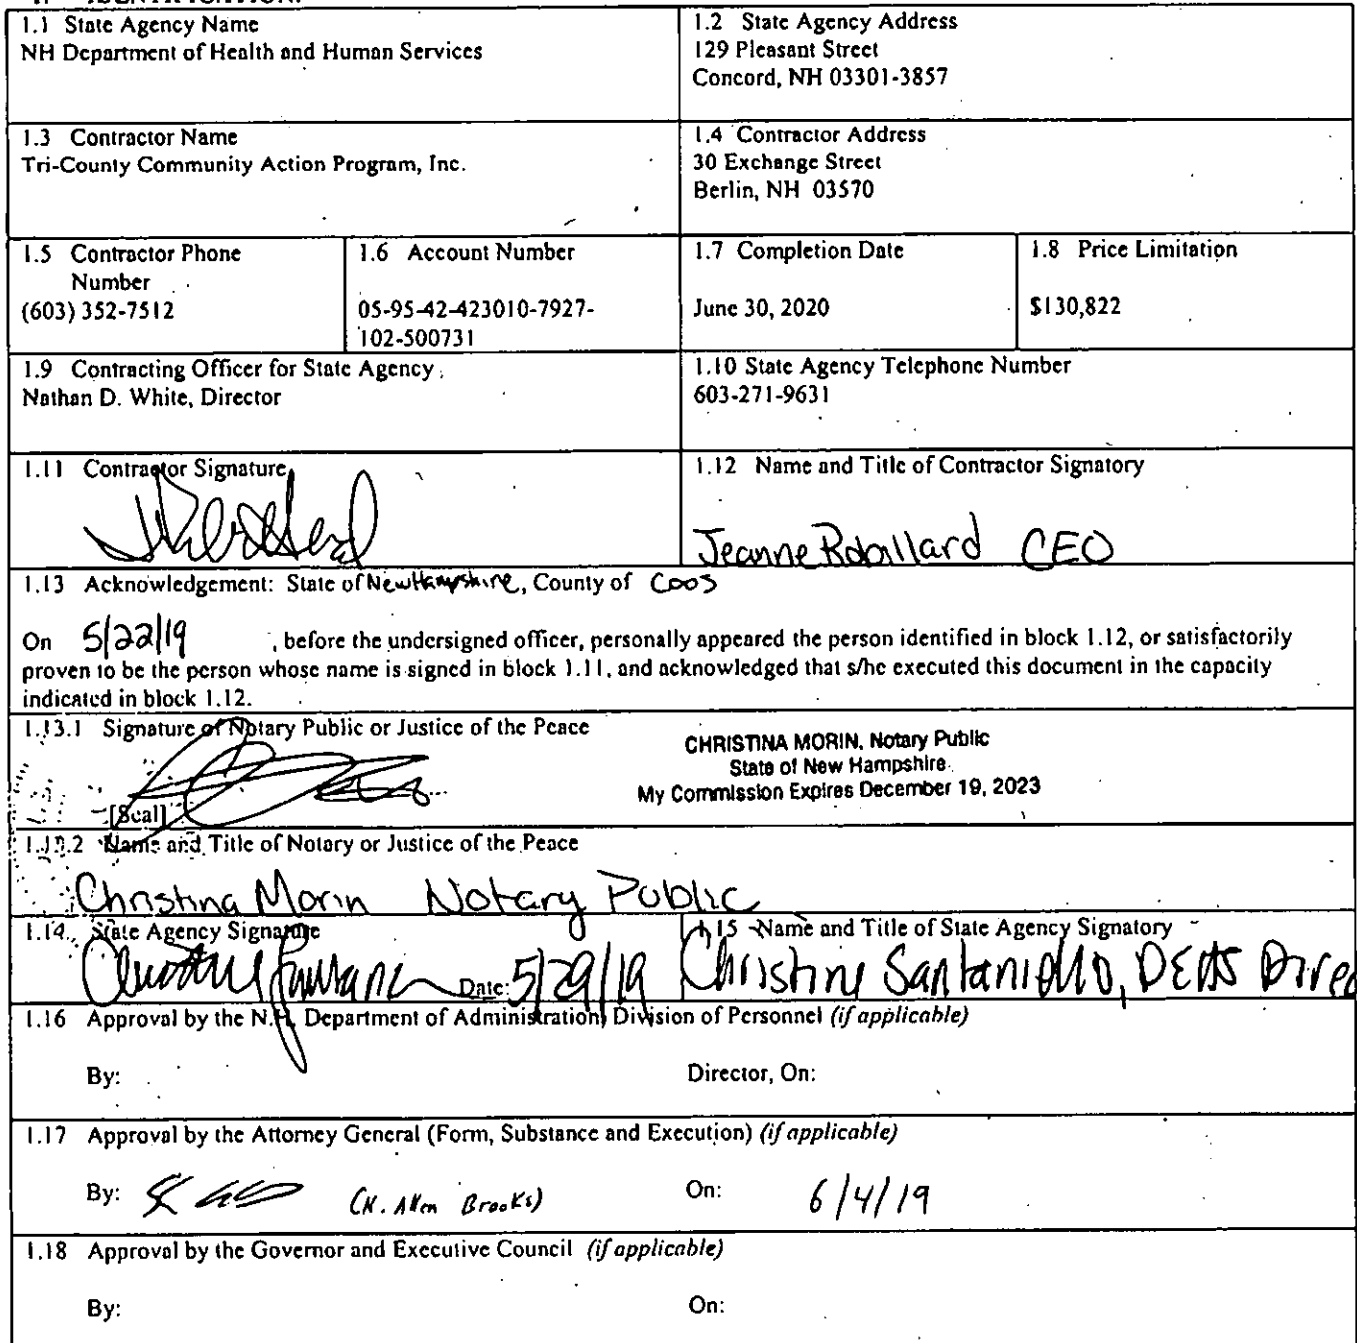 1.1 State Agency Name
NH Department of Health and Human Services
1.2 State Agency Address
129 Pleasant Street
Concord, NH 03301-3857
1.3 Contractor Name
Tri-County Community Action Program, Inc.
1.4 Contractor Address
30 Exchange Street
Berlin, NH 03570
1.5 Contractor Phone
Number
(603) 352-7512
1.6 Account Number
05-95-42-423010-7927-
102-500731
1.7 Completion Date
June 30, 2020
1.8 Price Limitation
$130,822
1.9 Contracting Officer for State Agency
Nathan D. White, Director
1.10 State Agency Telephone Number
603-271-9631
1.11 Contractor Signature
1.12 Name and Title of Contractor Signatory
Jeanne Robillard CEO
1.13 Acknowledgement: State of New Hampshire, County of Coos
On 5/22/19 , before the undersigned officer, personally appeared the person identified in block 1.12, or satisfactorily
proven to be the person whose name is signed in block 1.11, and acknowledged that s/he executed this document in the capacity
indicated in block 1.12.
1.13.1 Signature of Notary Public or Justice of the Peace
CHRISTINA MORIN, Notary Public
State of New Hampshire
My Commission Expires December 19, 2023
[Seal]
1.13.2 Name and Title of Notary or Justice of the Peace
Christina Morin Notary Public
1.14 State Agency Signature
Date: 5/29/19
1.15 Name and Title of State Agency Signatory
Christine Santaniello, DEHS Direc
1.16 Approval by the N.H. Department of Administration, Division of Personnel (if applicable)
By:
Director, On:
1.17 Approval by the Attorney General (Form, Substance and Execution) (if applicable)
By: (K. Allen Brooks)
On: 6/4/19
1.18 Approval by the Governor and Executive Council (if applicable)
By:
On: